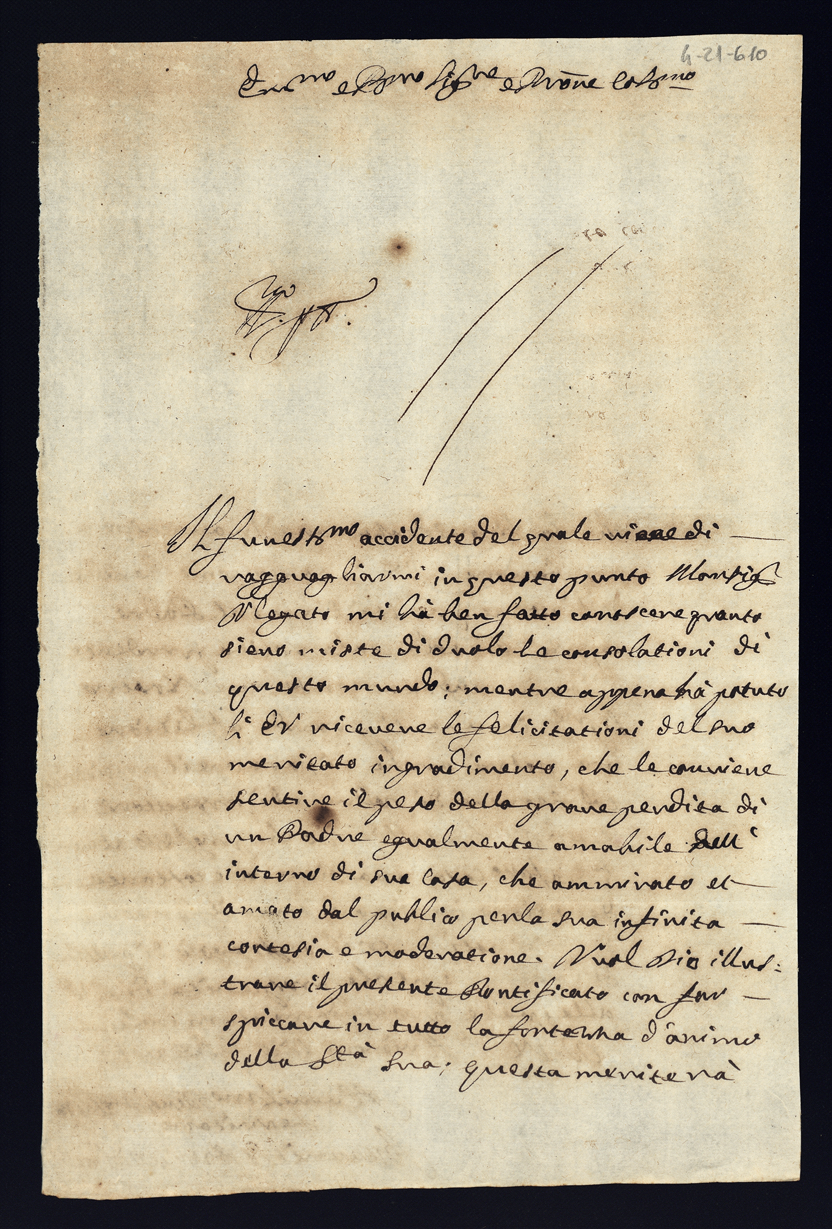 4-21-610
Em.mo e R.mo Sig.re e Prone Col.mo
Il funest.mo accidente del quale viene di
ragguagliarmi in questo punto Monsig.r
V'legato mi hà ben fatto conoscere quanto
sieno miste di duolo le consolationi di
questo mundo; mentre appena hà potuto
li E.V. ricevere le felicitationi del suo
meritato ingradimento, che le conviene
sentire il peso della grave perdita di
un Padre egualmente amabile dell'
interno di sue Casa, che ammirato et
amato dal publico per la sua infinita
cortesia e moderatione. Vuol Dio illus:
trare il presente Pontificato con far
spiccare in tutto la fortezza d'animo
della S.tà Sua; questa meriterà